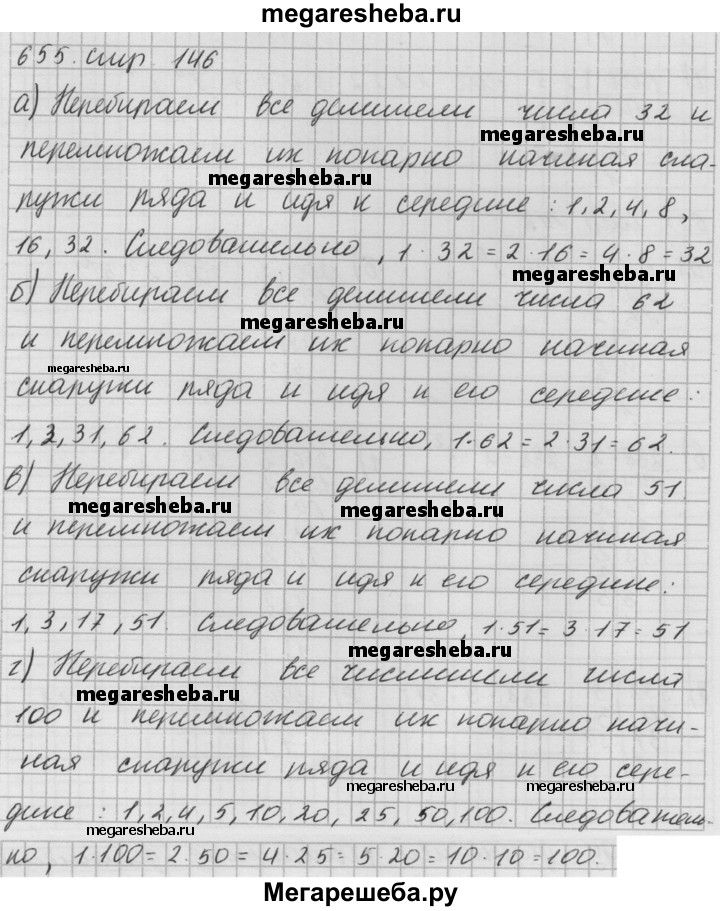 megaresheba.ru
655. стр 146
а) Перебираем все делители числа 32 и
megaresheba.ru
перемножаем их попарно начиная сна-
megaresheba.ru
ружи ряда и идя к середине : 1, 2, 4, 8,
16, 32. Следовательно, 1 · 32 = 2 · 16 = 4 · 8 = 32
megaresheba.ru
б) Перебираем все делители числа 62
megaresheba.ru
и перемножаем их попарно начиная
megaresheba.ru
снаружи ряда и идя к его середине :
1, 2, 31, 62. Следовательно, 1 · 62 = 2 · 31 = 62.
в) Перебираем все делители числа 51
megaresheba.ru megaresheba.ru
и перемножаем их попарно начиная
снаружи ряда и идя к его середине :
1, 3, 17, 51. Следовательно, 1 · 51 = 3 · 17 = 51
megaresheba.ru
г) Перебираем все числители числа
megaresheba.ru
100 и перемножаем их попарно начи-
ная снаружи ряда и идя к его сере-
megaresheba.ru
дине : 1, 2, 4, 5, 10, 20, 25, 50, 100. Следователь-
megaresheba.ru megaresheba.ru
но, 1 · 100 = 2 · 50 = 4 · 25 = 5 · 20 = 10 · 10 = 100.
Мегарешеба.ру